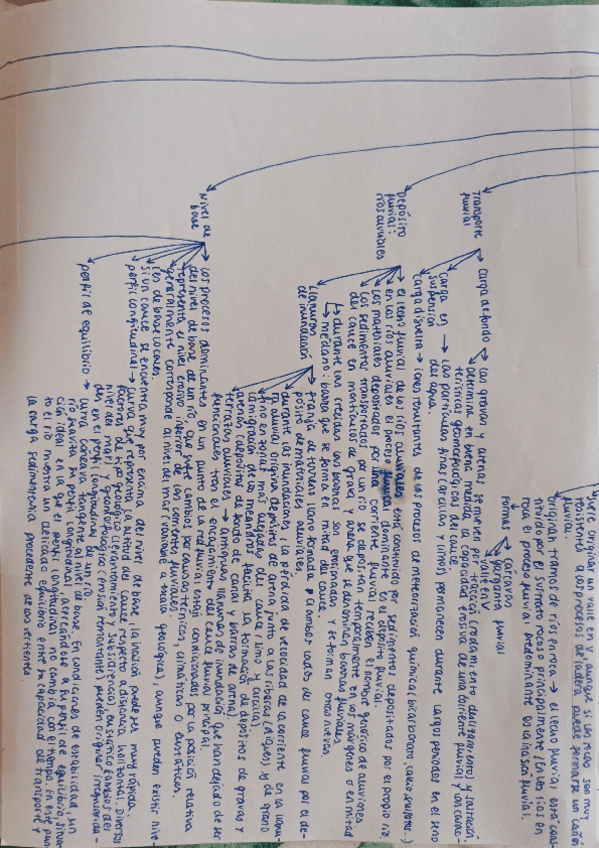 suele originar un valle en V aunque si las rocas son muy
resistentes a los procesos de ladera puede formarse un cañón
fluvial.
originan tramos de ríos en roca → el lecho fluvial está cons-
tituido por el sustrato rocoso principalmente. En los ríos en
roca el proceso fluvial predominante es la incisión fluvial.
Formas
cárcavas
garganta fluvial
valle en V
Transporte
fluvial
carga de fondo
las gravas y arenas se mueven x tracción (rodamiento, deslizamiento) y saltación.
Determina en buena medida la capacidad erosiva de una corriente fluvial y las carac-
terísticas geomorfológicas del cauce.
carga en
suspensión
→ las partículas finas (arcillas y limos) permanecen durante largos periodos en el seno
del agua.
carga disuelta → iones resultantes de los procesos de meteorización química (bicarbonato, calcio, sulfatos...)
Depósito
fluvial:
ríos aluviales
el lecho fluvial de los ríos aluviales está constituido por sedimentos depositados por el propio río
en los ríos aluviales el proceso fluvial dominante es el depósito fluvial.
los materiales depositados por una corriente fluvial reciben el nombre genérico de aluviones
los sedimentos transportados por un río se depositan temporalmente en los márgenes o en mitad
del cauce → montículos de grava y arena que se denominan barras fluviales.
↳ durante las crecidas las barras son erosionadas y se forman otras nuevas.
↳ mediano: barra que se forma en mitad du cauce.
Llanuras
de inundación
franja de terreno llano formada a ambos lados del cauce fluvial por el de-
pósito de materiales aluviales.
durante las inundaciones, la pérdida de velocidad de la corriente en la llanu-
ra aluvial origina depósitos de arena junto a las riberas (diques) y de grano
fino en zonas más alejadas del cauce (limo y arcilla).
la migración de los meandros facilita la formación de depósitos de gravas y
arenas (depósitos de fondo de canal y barras de arena).
terrazas aluviales → antiguas llanuras de inundación que han dejado de ser
funcionales tras el encajamiento del cauce fluvial principal.
Nivel de
base
los procesos dominantes en un punto de la red fluvial están condicionados por la posición relativa
del nivel de base de un río, que sufre cambios por causas tectónicas, climáticas o eustáticas.
representa el nivel erosivo inferior de las corrientes fluviales.
generalmente corresponde al nivel del mar (variable a escala geológica), aunque pueden existir nive-
les de base locales
si un cauce se encuentra muy por encima del nivel de base, la incisión puede ser muy rápida.
perfil longitudinal → curva que representa la altitud del cauce respecto a distancia horizontal. Diversos
factores de tipo geológico (levantamientos, subsidencia), eustático (cambios del
nivel del mar) y geomorfológico (erosión remontante) pueden originar irregularida-
des en el perfil longitudinal de un río.
perfil de equilibrio → curva cóncava tangente al nivel de base. En condiciones de estabilidad, un
río suaviza su perfil longitudinal, acercándose a su perfil de equilibrio, situa-
ción ideal en la que el perfil longitudinal no cambia con el tiempo. En este pun-
to el río muestra un delicado equilibrio entre su capacidad de transporte y
la carga sedimentaria procedente de las vertientes.